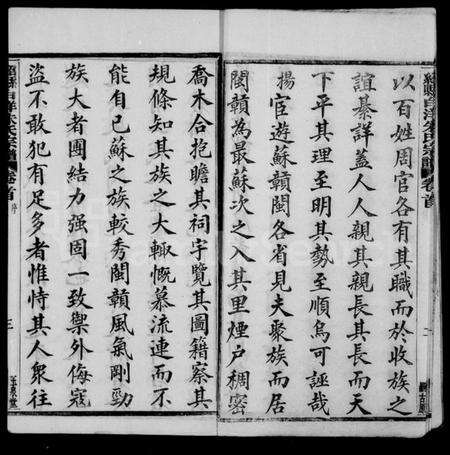 以百姓周官各有其職而於收族之
誼綦詳蓋人人親其親長其長而天
下平其理至明其勢至順烏可誣哉
揚官遊蘇贛閩各省見夫聚族而居
閩贛為最蘇次之入其里煙戶稠密
喬木合抱瞻其祠宇覽其圖籍察其
規條知其族之大輒慨慕流連而不
能自已蘇之族較秀閩贛風氣剛勁
族大者團結力强固一致禦外侮寇
盜不敢犯有足多者惟恃其人衆往
卷首
序
三